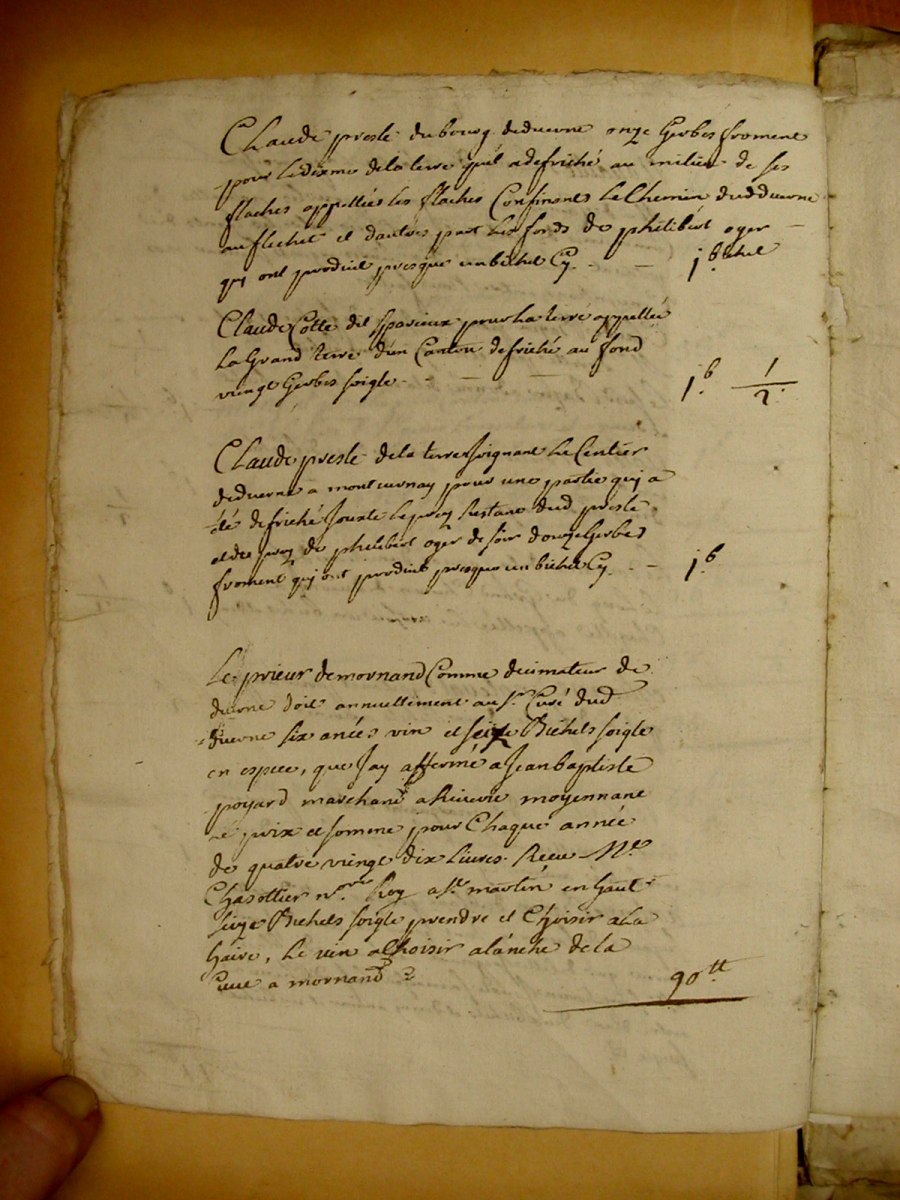 Claude preste du bourg deduerne onze Gerbes froment
pour ledixme dela terre quil adefriché au milieu de ses
flaches appellées les flaches Confinants Le Chemin dudduerne
au flechet et dautres part Les fonds de philibert oger
qui ont produit presque un bichet Cy - - 1 bichet
Claude Cotte dit pour La terre appellée
La Grand terre dun Canton defriché au fond
vuingt Gerbes soigle - - - 1.b 1/2
Claude preste dela terre Joignant Le Centier
deduerne a pour une partie qui a
été defriché Jouxte Le prez Restant dud preste
et du prez de philibert oger de soir douze Gerbes
froment qui ont produit presque un bichet Cy - - 1.b
Le prieur demornand Comme decimateur de
duerne doit annuellement au Sr Curé dud
duerne six anées vin et seize Bichets soigle
en espece, que Jay affermé a Jean baptiste
poyard marchand a Riverie moyennant
Le prix et somme pour Chaque année
de quatre vuingt dix Livres. Receu Me
Chasottier nre Roy a St martin en haut
seize Bichets soigle prendre et Choisir a La
haire, Le vin a Choisir a lánche de la
Cuve a mornand 90tt